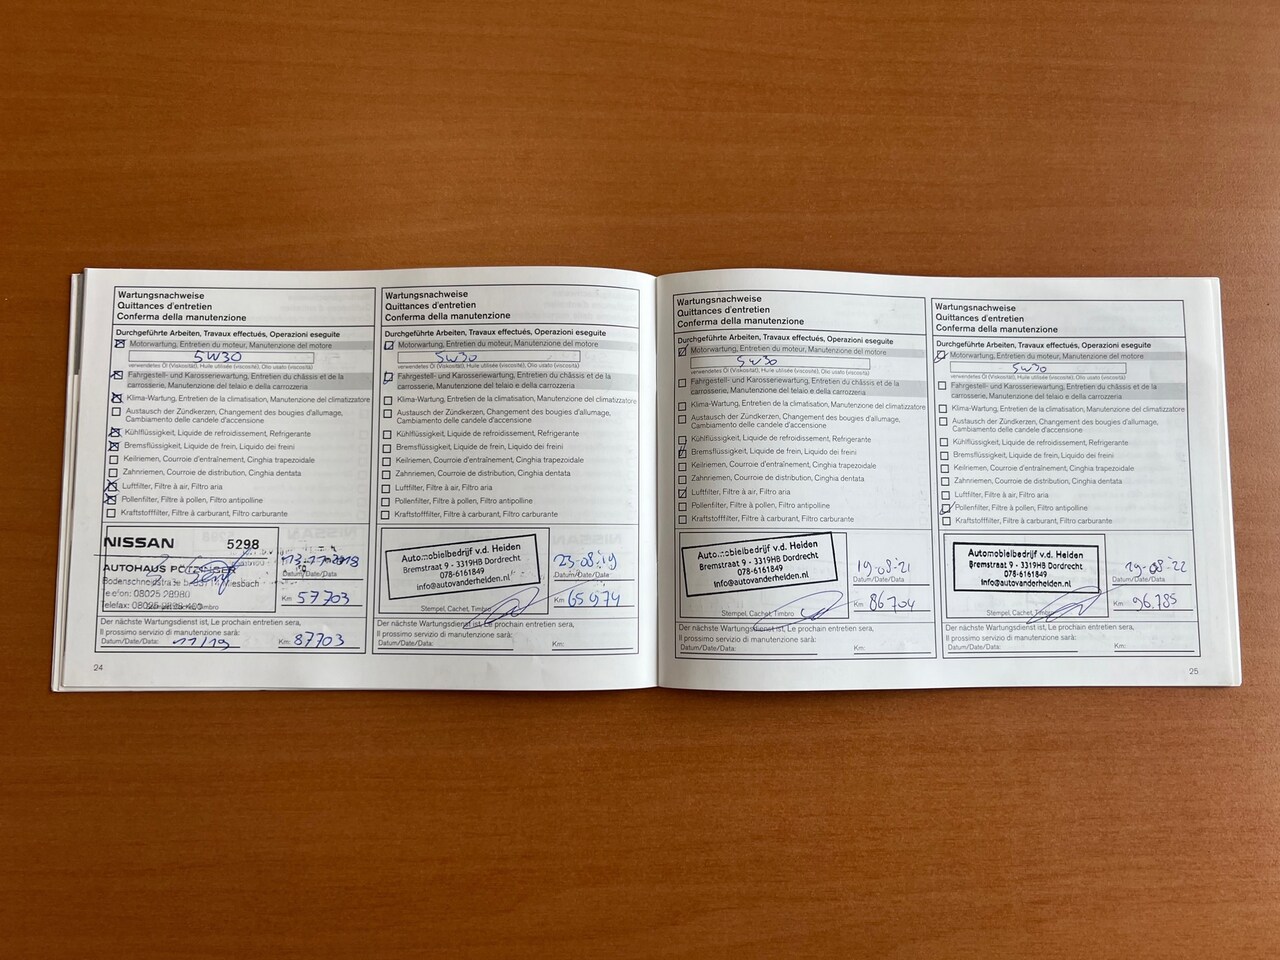 Wartungsnachweise
Quittances d'entretien
Conferma della manutenzione
Durchgeführte Arbeiten, Travaux effectués, Operazioni eseguite
Motorwartung, Entretien du moteur, Manutenzione del motore
5W30
verwendetes Öl (Viskosität), Huile utilisée (viscosité), Olio usato (viscosità)
Fahrgestell- und Karosseriewartung, Entretien du châssis et de la
carrosserie, Manutenzione del telaio e della carrozzeria
Klima-Wartung, Entretien de la climatisation, Manutenzione del climatizzatore
Austausch der Zündkerzen, Changement des bougies d'allumage,
Cambiamento delle candele d'accensione
Kühlflüssigkeit, Liquide de refroidissement, Refrigerante
Bremsflüssigkeit, Liquide de frein, Liquido dei freini
Keilriemen, Courroie d'entraînement, Cinghia trapezoidale
Zahnriemen, Courroie de distribution, Cinghia dentata
Luftfilter, Filtre à air, Filtro aria
Pollenfilter, Filtre à pollen, Filtro antipolline
Kraftstofffilter, Filtre à carburant, Filtro carburante
NISSAN 5298
AUTOHAUS
Datum/Date/Data:
Telefon: 08025
Km: 57703
Telefax: 08025
Stempel, Cachet, Timbro
Der nächste Wartungsdienst ist, Le prochain entretien sera,
Il prossimo servizio di manutenzione sarà:
Datum/Date/Data: 11/19 Km: 87703
24
Wartungsnachweise
Quittances d'entretien
Conferma della manutenzione
Durchgeführte Arbeiten, Travaux effectués, Operazioni eseguite
Motorwartung, Entretien du moteur, Manutenzione del motore
5W30
verwendetes Öl (Viskosität), Huile utilisée (viscosité), Olio usato (viscosità)
Fahrgestell- und Karosseriewartung, Entretien du châssis et de la
carrosserie, Manutenzione del telaio e della carrozzeria
Klima-Wartung, Entretien de la climatisation, Manutenzione del climatizzatore
Austausch der Zündkerzen, Changement des bougies d'allumage,
Cambiamento delle candele d'accensione
Kühlflüssigkeit, Liquide de refroidissement, Refrigerante
Bremsflüssigkeit, Liquide de frein, Liquido dei freini
Keilriemen, Courroie d'entraînement, Cinghia trapezoidale
Zahnriemen, Courroie de distribution, Cinghia dentata
Luftfilter, Filtre à air, Filtro aria
Pollenfilter, Filtre à pollen, Filtro antipolline
Kraftstofffilter, Filtre à carburant, Filtro carburante
Automobielbedrijf v.d. Heiden
Bremstraat 9 - 3319HB Dordrecht
078-6161849
info@autovanderheiden.nl
23-08-19
Datum/Date/Data:
Km: 65974
Stempel, Cachet, Timbro
Der nächste Wartungsdienst ist, Le prochain entretien sera,
Il prossimo servizio di manutenzione sarà:
Datum/Date/Data: Km:
Wartungsnachweise
Quittances d'entretien
Conferma della manutenzione
Durchgeführte Arbeiten, Travaux effectués, Operazioni eseguite
Motorwartung, Entretien du moteur, Manutenzione del motore
5W30
verwendetes Öl (Viskosität), Huile utilisée (viscosité), Olio usato (viscosità)
Fahrgestell- und Karosseriewartung, Entretien du châssis et de la
carrosserie, Manutenzione del telaio e della carrozzeria
Klima-Wartung, Entretien de la climatisation, Manutenzione del climatizzatore
Austausch der Zündkerzen, Changement des bougies d'allumage,
Cambiamento delle candele d'accensione
Kühlflüssigkeit, Liquide de refroidissement, Refrigerante
Bremsflüssigkeit, Liquide de frein, Liquido dei freini
Keilriemen, Courroie d'entraînement, Cinghia trapezoidale
Zahnriemen, Courroie de distribution, Cinghia dentata
Luftfilter, Filtre à air, Filtro aria
Pollenfilter, Filtre à pollen, Filtro antipolline
Kraftstofffilter, Filtre à carburant, Filtro carburante
Automobielbedrijf v.d. Heiden
Bremstraat 9 - 3319HB Dordrecht
078-6161849
info@autovanderheiden.nl
19-08-21
Datum/Date/Data:
Km: 86704
Stempel, Cachet, Timbro
Der nächste Wartungsdienst ist, Le prochain entretien sera,
Il prossimo servizio di manutenzione sarà:
Datum/Date/Data: Km:
Wartungsnachweise
Quittances d'entretien
Conferma della manutenzione
Durchgeführte Arbeiten, Travaux effectués, Operazioni eseguite
Motorwartung, Entretien du moteur, Manutenzione del motore
5W30
verwendetes Öl (Viskosität), Huile utilisée (viscosité), Olio usato (viscosità)
Fahrgestell- und Karosseriewartung, Entretien du châssis et de la
carrosserie, Manutenzione del telaio e della carrozzeria
Klima-Wartung, Entretien de la climatisation, Manutenzione del climatizzatore
Austausch der Zündkerzen, Changement des bougies d'allumage,
Cambiamento delle candele d'accensione
Kühlflüssigkeit, Liquide de refroidissement, Refrigerante
Bremsflüssigkeit, Liquide de frein, Liquido dei freini
Keilriemen, Courroie d'entraînement, Cinghia trapezoidale
Zahnriemen, Courroie de distribution, Cinghia dentata
Luftfilter, Filtre à air, Filtro aria
Pollenfilter, Filtre à pollen, Filtro antipolline
Kraftstofffilter, Filtre à carburant, Filtro carburante
Automobielbedrijf v.d. Heiden
Bremstraat 9 - 3319HB Dordrecht
078-6161849
info@autovanderheiden.nl
19-08-22
Datum/Date/Data:
Km: 96.785
Stempel, Cachet, Timbro
Der nächste Wartungsdienst ist, Le prochain entretien sera,
Il prossimo servizio di manutenzione sarà:
Datum/Date/Data: Km:
25